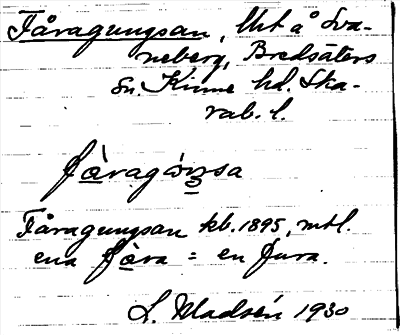 Fåragungsan, lht å Sva-
neberg, Bredsäters
sn. Kinne hd. Ska-
rab. l.
fàragòŋsa
Fåragungsan kb. 1895, mtl.
ena fåra = en fura.
L. Madsén 1930